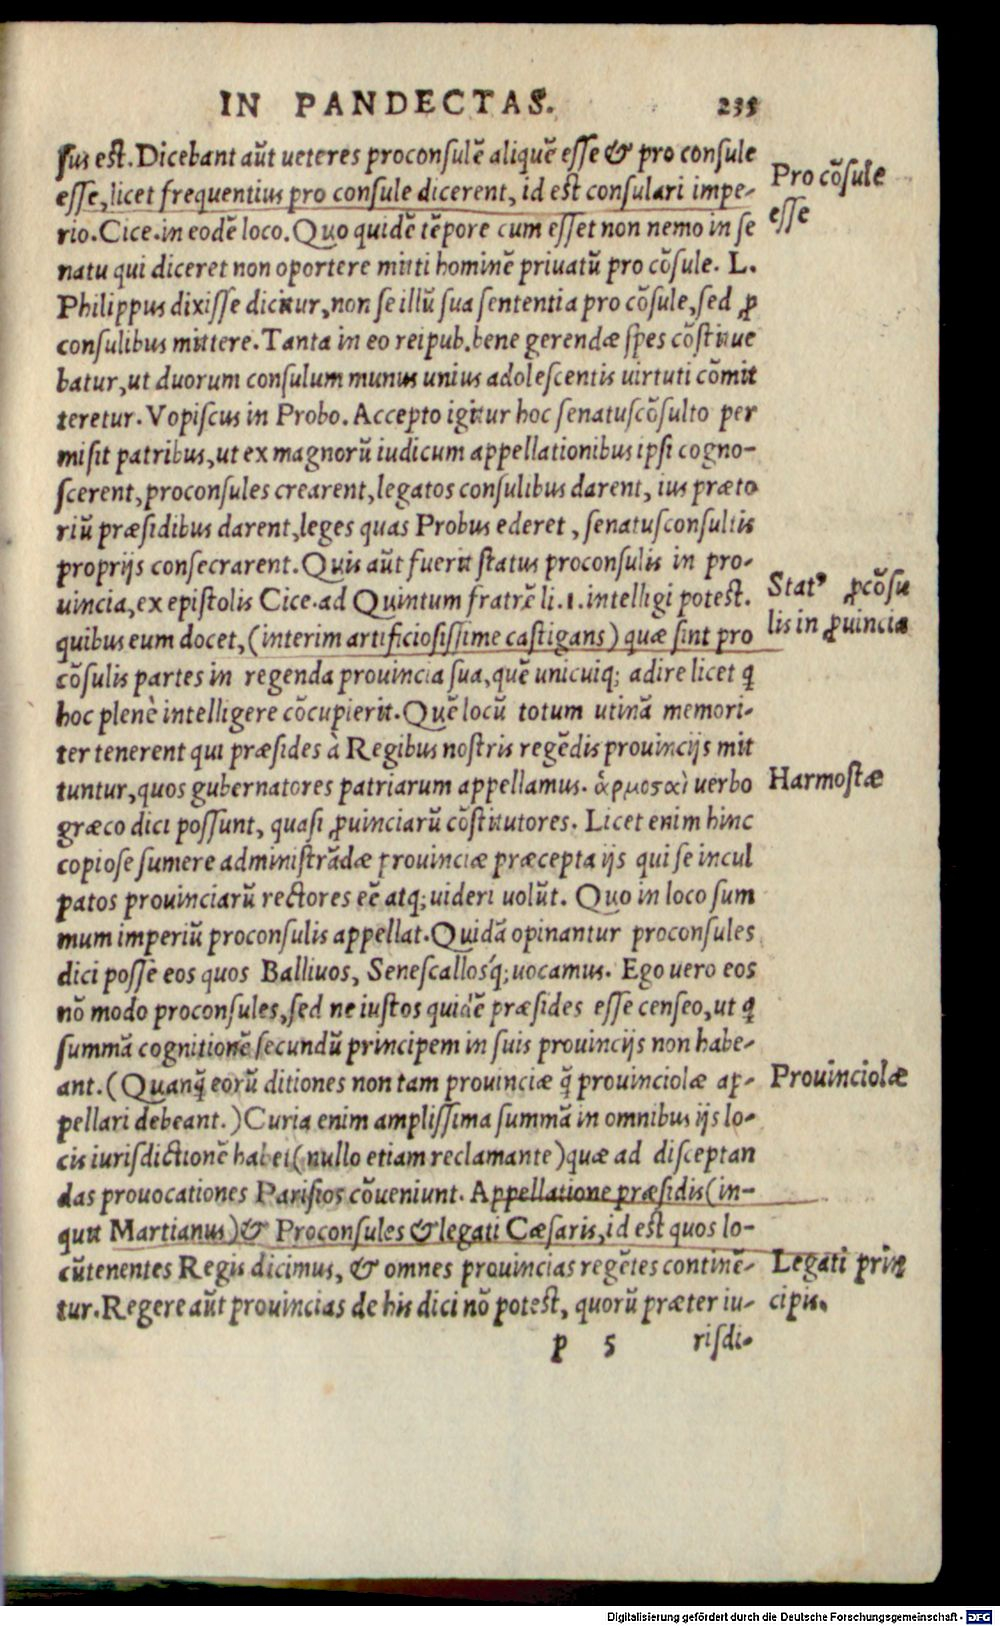 IN PANDECTAS. 235
sus est. Dicebant aūt ueteres proconsulē aliquē esse & pro consule
esse, licet frequentius pro consule dicerent, id est consulari impe-
rio. Cice. in eodē loco. Quo quidē tēpore cum esset non nemo in se
natu qui diceret non oportere mitti hominē priuatū pro cōsule. L.
Philippus dixisse dicitur, non se illū sua sententia pro cōsule, sed ꝓ
consulibus mittere. Tanta in eo reipub. bene gerendæ spes cōstitue
batur, ut duorum consulum munus unius adolescentis uirtuti cōmit
teretur. Vopiscus in Probo. Accepto igitur hoc senatuscōsulto per
misit patribus, ut ex magnorū iudicum appellationibus ipsi cogno-
scerent, proconsules crearent, legatos consulibus darent, ius præto
riū præsidibus darent, leges quas Probus ederet, senatusconsultis
proprijs consecrarent. Quis aūt fuerit status proconsulis in pro-
uincia, ex epistolis Cice. ad Quintum fratrē li. 1. intelligi potest.
quibus eum docet, (interim artificiosissime castigans) quæ sint pro
cōsulis partes in regenda prouincia sua, quē unicuiq; adire licet q̄
hoc plenè intelligere cōcupierit. Quē locū totum utinā memori-
ter tenerent qui præsides à Regibus nostris regēdis prouincijs mit
tuntur, quos gubernatores patriarum appellamus. ἁρμοσαὶ uerbo
græco dici possunt, quasi ꝓuinciarū cōstitutores. Licet enim hinc
copiose sumere administrādæ prouinciæ præcepta ijs qui se incul
patos prouinciarū rectores eē atq; uideri uolūt. Quo in loco sum
mum imperiū proconsulis appellat. Quidā opinantur proconsules
dici posse eos quos Balliuos, Senescallosq́; uocamus. Ego uero eos
nō modo proconsules, sed ne iustos quidē præsides esse censeo, ut q̄
summā cognitionē secundū principem in suis prouincijs non habe-
ant. (Quanq̄ eorū ditiones non tam prouinciæ q̄ prouinciolæ ap-
pellari debeant.) Curia enim amplissima summā in omnibus ijs lo-
cis iurisdictionē habet (nullo etiam reclamante) quæ ad disceptan
das prouocationes Parisios cōueniunt. Appellatione præsidis (in-
quit Martianus) & Proconsules & legati Cæsaris, id est quos lo-
cūtenentes Regis dicimus, & omnes prouincias regētes continē-
tur. Regere aūt prouincias de his dici nō potest, quorū præter iu-
p 5 risdi-
Pro cōsule
esse
Statꝰ ꝓcōsu
lis in ꝓuincia
Harmostæ
Prouinciolæ
Legati prin
cipis.
Digitalisierung gefördert durch die Deutsche Forschungsgemeinschaft - DFG